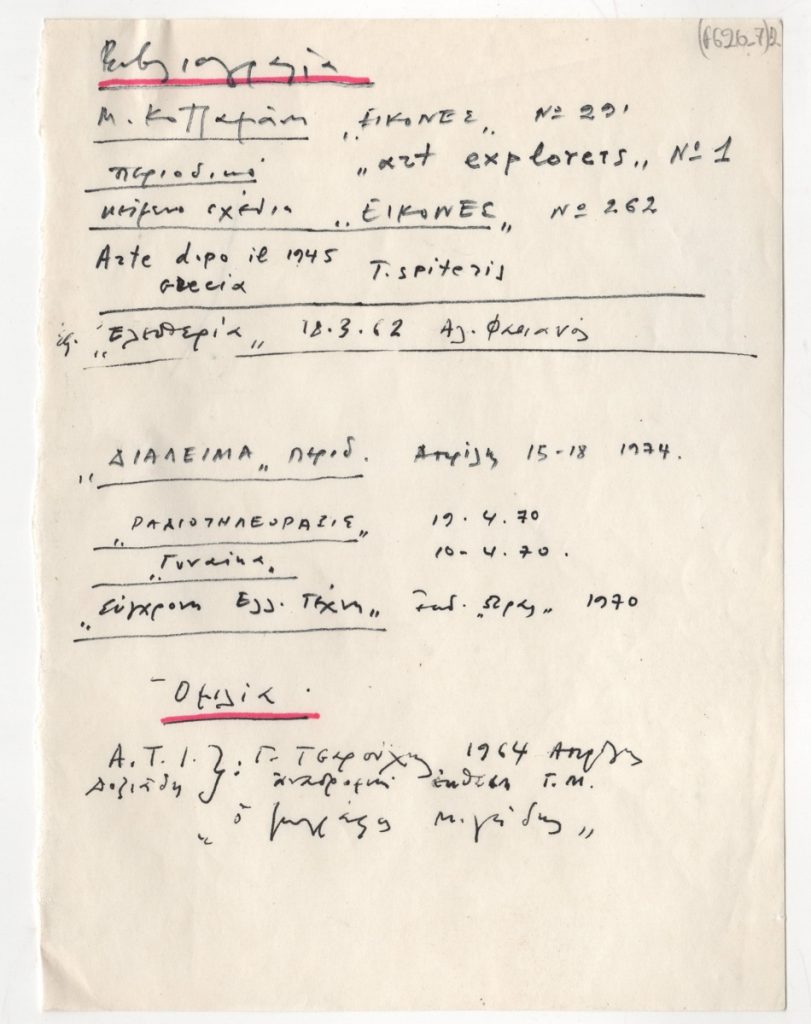 (Α626_7)2
Βιβλιογραφία
Μ. Κοτζαμάνη „ΕΙΚΟΝΕΣ„ Νο 291
περιοδικό „art explorers„ Νο 1
κείμενο σχέδια „ΕΙΚΟΝΕΣ„ Νο 262
Arte dopo il 1945 T. spiteris
Grecia
ἐφ. „Ελευθερία„ 18.3.62 Αλ. Φασιανός
„ΔΙΑΛΕΙΜΑ„ περιοδ. Απρίλη 15-18 1974.
„ΡΑΔΙΟΤΗΛΕΟΡΑΣΙΣ„ 19.4.70
„Γυναίκα„ 10-4.70.
„Σύγχρονη Ελλ. Τέχνη„ Εκδ. „Ώρας„ 1970
Ομιλία.
Α.Τ.Ι. }: Γ. Τσαρούχη 1964 Απρίλη
Δοξιάδη ἀναδρομική ἔκθεση Γ.Μ.
„ὁ ζωγράφος Μιγάδης„